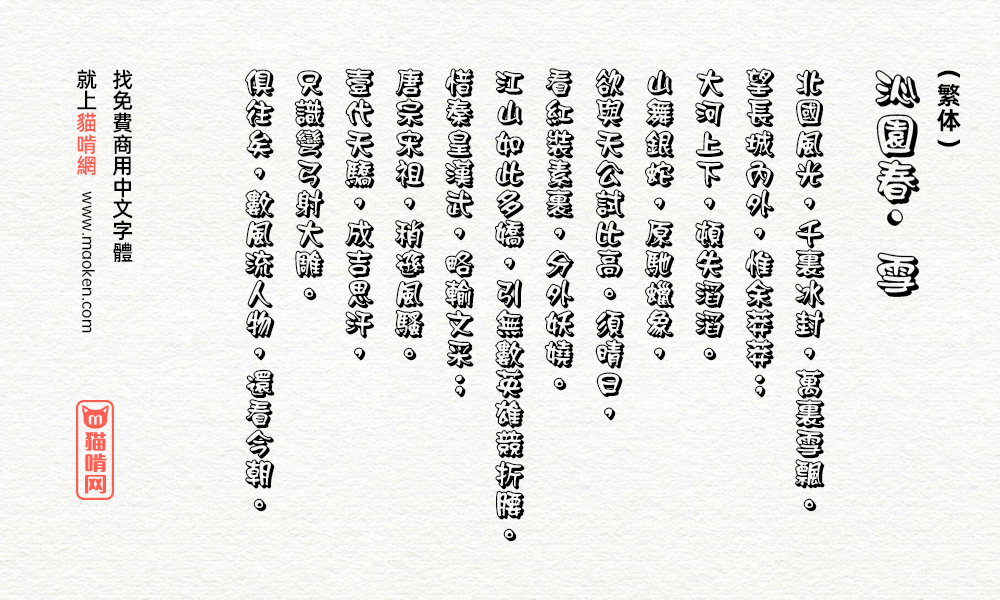 (繁体)
沁園春·雪
北國風光，千裏冰封，萬裏雪飄。
望長城內外，惟余莽莽；
大河上下，頓失滔滔。
山舞銀蛇，原馳蠟象，
欲與天公試比高。須晴日，
看紅裝素裹，分外妖嬈。
江山如此多嬌，引無數英雄競折腰。
惜秦皇漢武，略輸文采；
唐宗宋祖，稍遜風騷。
壹代天驕，成吉思汗，
只識彎弓射大雕。
俱往矣，數風流人物，還看今朝。
找免費商用中文字體
就上貓啃網 www.maoken.com
猫啃网